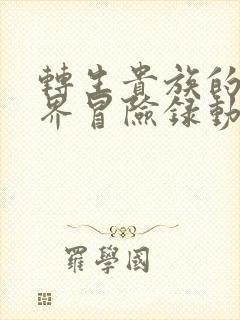 轉生貴族的
界冒險録動
羅學國